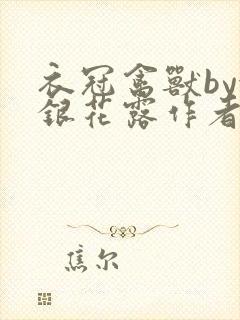 衣冠禽獸by
銀花露作者
焦尔